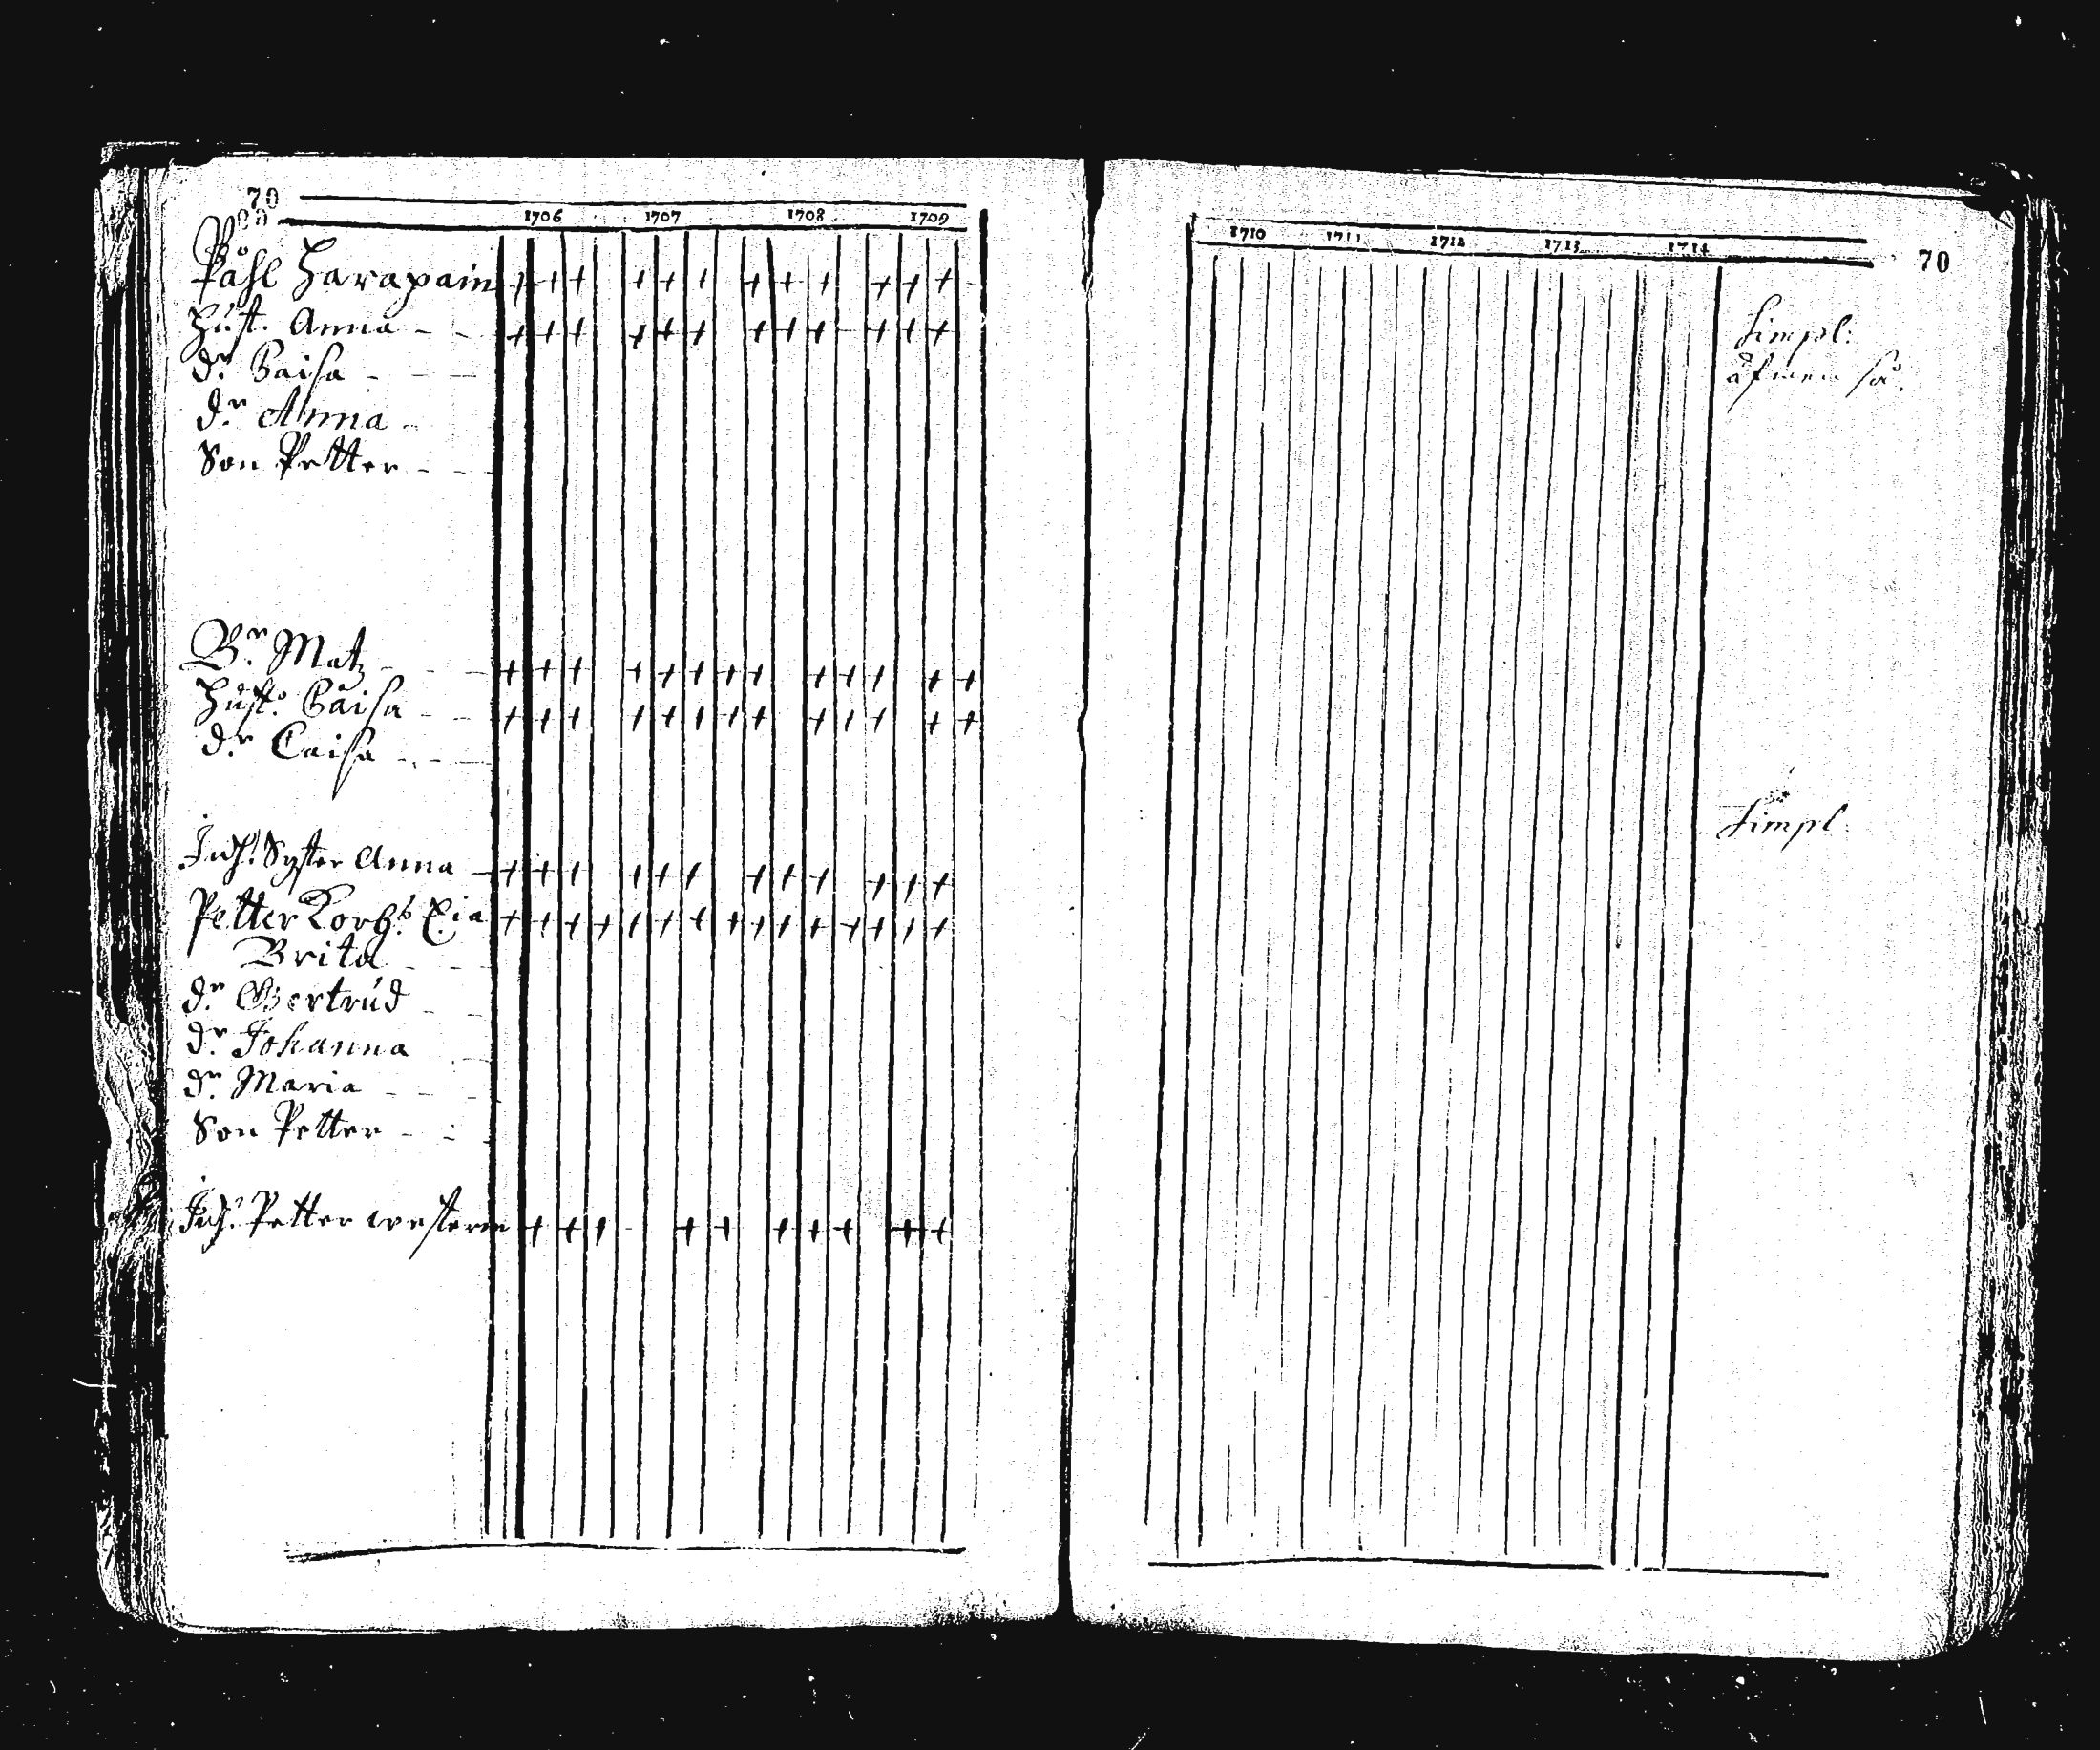 70
1706 1707 1708 1709
Påhl Harapain
Hust. Anna
dr. Caisa
dr. Anna
Son Petter
Br. Matz
Hust. Caisa
dr. Caisa
Inh. Syster Anna
Petter
Brita
dr. Gertrud
dr. Johanna
dr. Maria
Son Petter
Inh. Petter
1710 1711 1712 1713 1714
70
Simpl:
äfwen så.
Simpl.